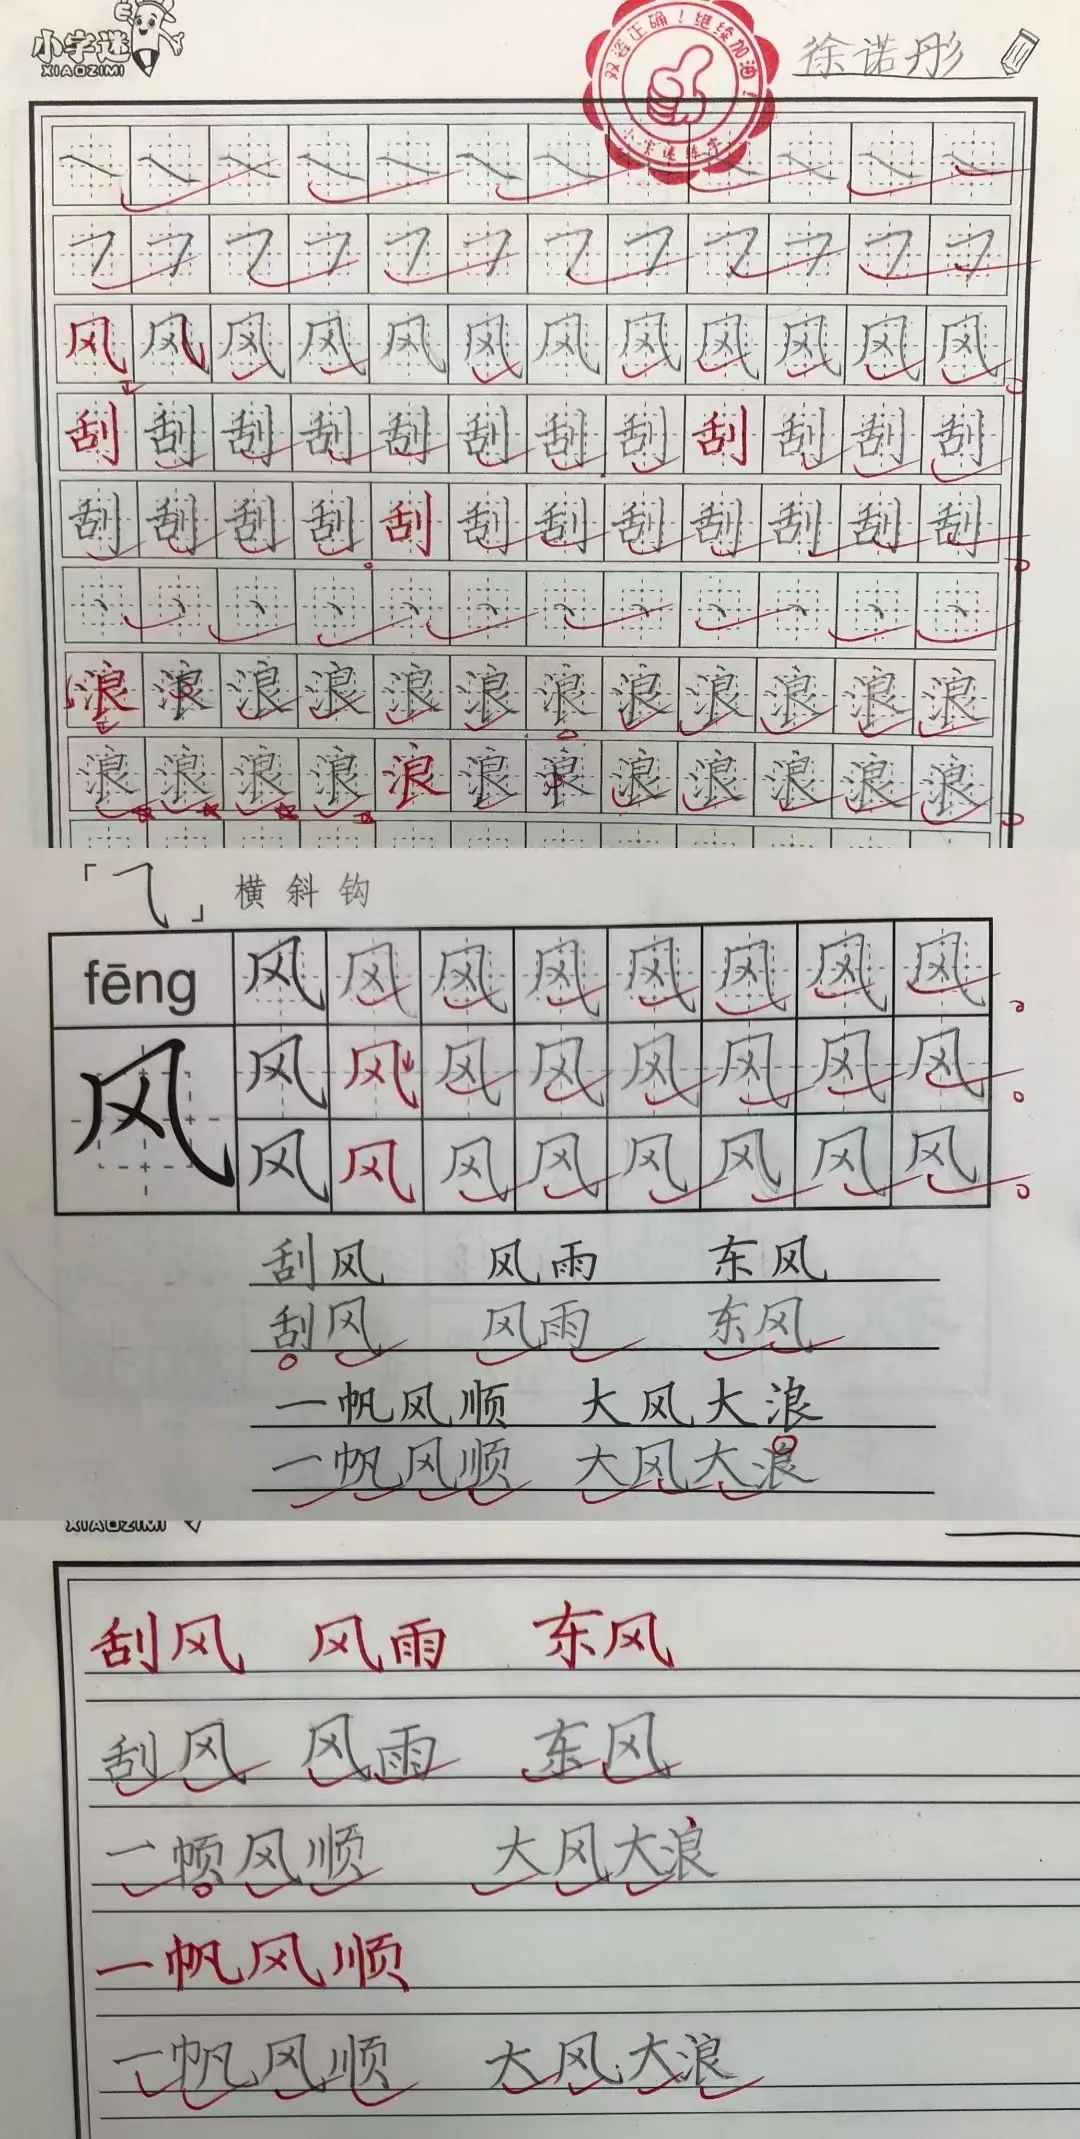 小字迷
XIAOZIMI
双姿正确！继续加油！
小字迷练字
徐诺彤
风风风风风风风风风风风风
刮刮刮刮刮刮刮刮刮刮刮刮
刮刮刮刮刮刮刮刮刮刮刮刮
浪浪浪浪浪浪浪浪浪浪浪浪
浪浪浪浪浪浪浪浪浪浪浪浪
「⺄」横斜钩
fēng 风风风风风风风风
风 风风风风风风风风
风风风风风风风风
刮风 风雨 东风
刮风 风雨 东风
一帆风顺 大风大浪
一帆风顺 大风大浪
XIAOZIMI
刮风 风雨 东风
刮风 风雨 东风
一 风顺 大风大浪
一帆风顺
一帆风顺 大风大浪